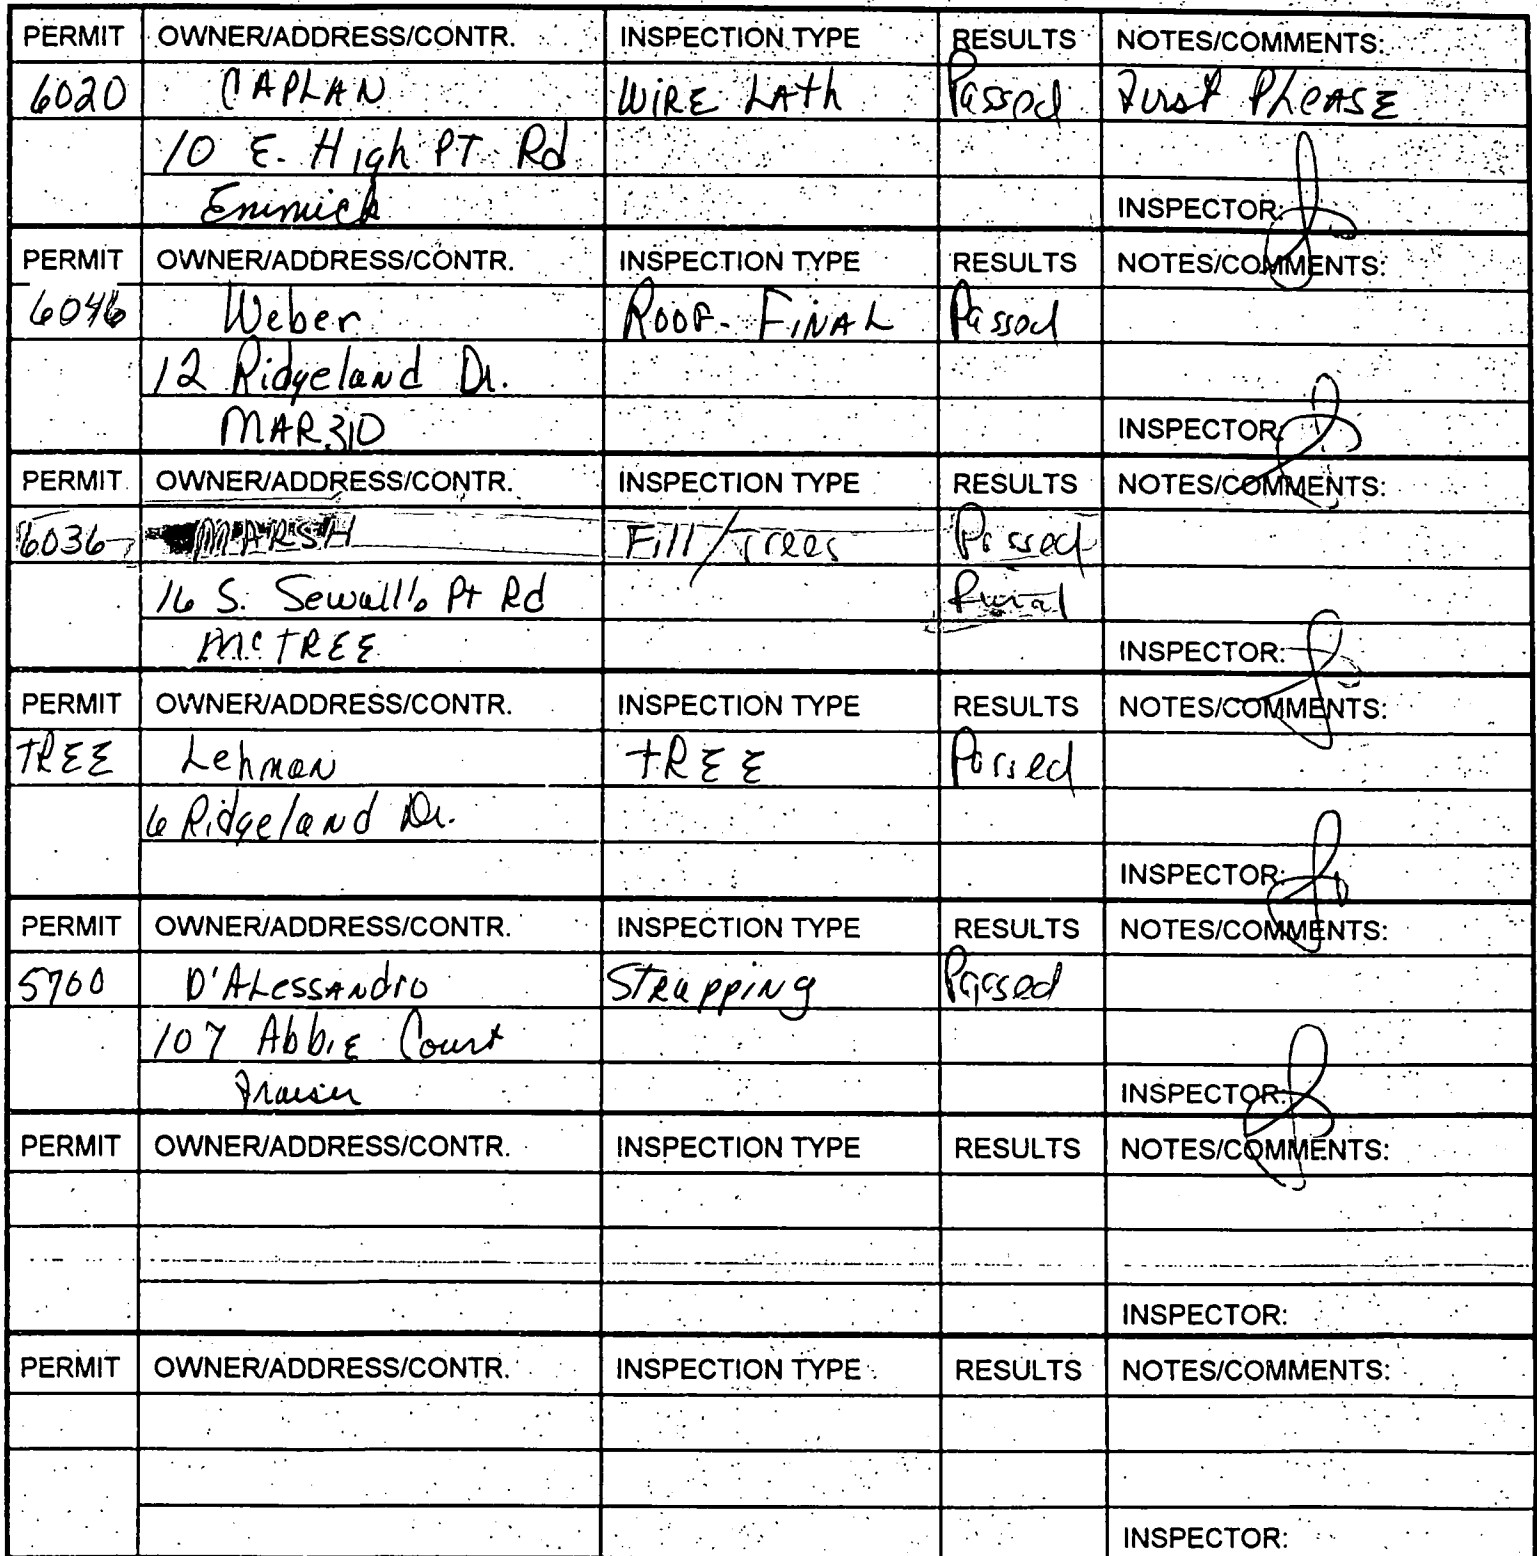 PERMIT OWNER/ADDRESS/CONTR. INSPECTION TYPE RESULTS NOTES/COMMENTS:
6020 CAPLAN WIRE LAth Passed First PLEASE
10 E. High PT Rd
Emmick
INSPECTOR:
PERMIT OWNER/ADDRESS/CONTR. INSPECTION TYPE RESULTS NOTES/COMMENTS:
6046 Weber ROOF- FINAL Passed
12 Ridgeland Dr.
MARZIO
INSPECTOR:
PERMIT OWNER/ADDRESS/CONTR. INSPECTION TYPE RESULTS NOTES/COMMENTS:
6036 MARSH Fill/Trees Passed
16 S. Sewall's Pt Rd
McTREE
INSPECTOR:
PERMIT OWNER/ADDRESS/CONTR. INSPECTION TYPE RESULTS NOTES/COMMENTS:
TREE Lehman tREE Passed
6 Ridgeland Dr.
INSPECTOR:
PERMIT OWNER/ADDRESS/CONTR. INSPECTION TYPE RESULTS NOTES/COMMENTS:
5700 D'ALessANdro Strapping Passed
107 AbbiE Court
INSPECTOR:
PERMIT OWNER/ADDRESS/CONTR. INSPECTION TYPE RESULTS NOTES/COMMENTS:
INSPECTOR:
PERMIT OWNER/ADDRESS/CONTR. INSPECTION TYPE RESULTS NOTES/COMMENTS:
INSPECTOR: